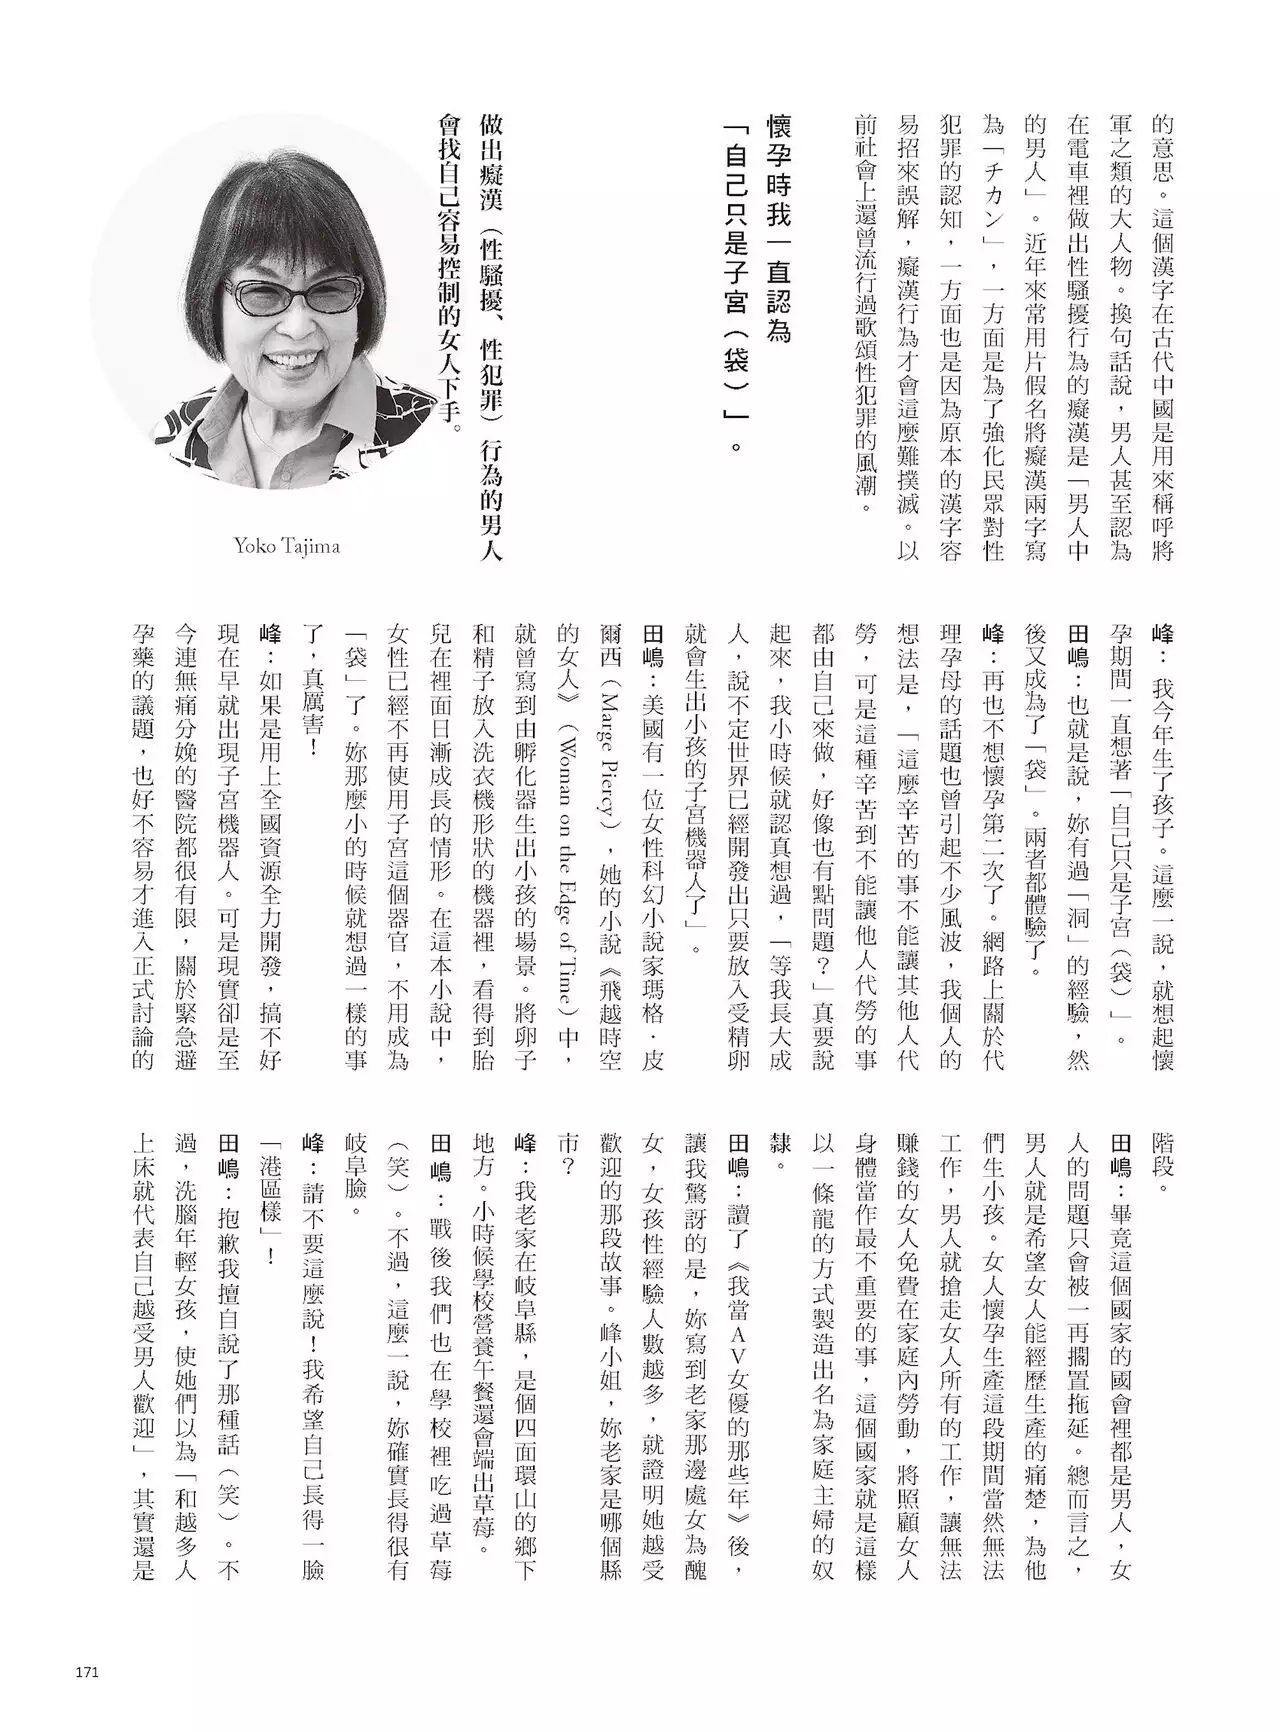 的意思。這個漢字在古代中國是用來稱呼將
軍之類的大人物。換句話說，男人甚至認為
在電車裡做出性騷擾行為的癡漢是「男人中
的男人」。近年來常用片假名將癡漢兩字寫
為「チカン」，一方面是為了強化民眾對性
犯罪的認知，一方面也是因為原本的漢字容
易招來誤解，癡漢行為才會這麼難撲滅。以
前社會上還曾流行過歌頌性犯罪的風潮。
懷孕時我一直認為
「自己只是子宮（袋）」。
做出癡漢（性騷擾、性犯罪）行為的男人
會找自己容易控制的女人下手。
Yoko Tajima
峰：我今年生了孩子。這麼一說，就想起懷
孕期間一直想著「自己只是子宮（袋）」。
田嶋：也就是說，妳有過「洞」的經驗，然
後又成為了「袋」。兩者都體驗了。
峰：再也不想懷孕第二次了。網路上關於代
理孕母的話題也曾引起不少風波，我個人的
想法是，「這麼辛苦的事不能讓其他人代
勞，可是這種辛苦到不能讓他人代勞的事
都由自己來做，好像也有點問題？」真要說
起來，我小時候就認真想過，「等我長大成
人，說不定世界已經開發出只要放入受精卵
就會生出小孩的子宮機器人了」。
田嶋：美國有一位女性科幻小說家瑪格．皮
爾西（Marge Piercy），她的小說《飛越時空
的女人》（Woman on the Edge of Time）中，
就曾寫到由孵化器生出小孩的場景。將卵子
和精子放入洗衣機形狀的機器裡，看得到胎
兒在裡面日漸成長的情形。在這本小說中，
女性已經不再使用子宮這個器官，不用成為
「袋」了。妳那麼小的時候就想過一樣的事
了，真厲害！
峰：如果是用上全國資源全力開發，搞不好
現在早就出現子宮機器人。可是現實卻是至
今連無痛分娩的醫院都很有限，關於緊急避
孕藥的議題，也好不容易才進入正式討論的
階段。
田嶋：畢竟這個國家的國會裡都是男人，女
人的問題只會被一再擱置拖延。總而言之，
男人就是希望女人能經歷生產的痛楚，為他
們生小孩。女人懷孕生產這段期間當然無法
工作，男人就搶走女人所有的工作，讓無法
賺錢的女人免費在家庭內勞動，將照顧女人
身體當作最不重要的事，這個國家就是這樣
以一條龍的方式製造出名為家庭主婦的奴
隸。
田嶋：讀了《我當AV女優的那些年》後，
讓我驚訝的是，妳寫到老家那邊處女為醜
女，女孩性經驗人數越多，就證明她越受
歡迎的那段故事。峰小姐，妳老家是哪個縣
市？
峰：我老家在岐阜縣，是個四面環山的鄉下
地方。小時候學校營養午餐還會端出草莓。
田嶋：戰後我們也在學校裡吃過草莓
（笑）。不過，這麼一說，妳確實長得很有
岐阜臉。
峰：請不要這麼說！我希望自己長得一臉
「港區樣」！
田嶋：抱歉我擅自說了那種話（笑）。不
過，洗腦年輕女孩，使她們以為「和越多人
上床就代表自己越受男人歡迎」，其實還是
171